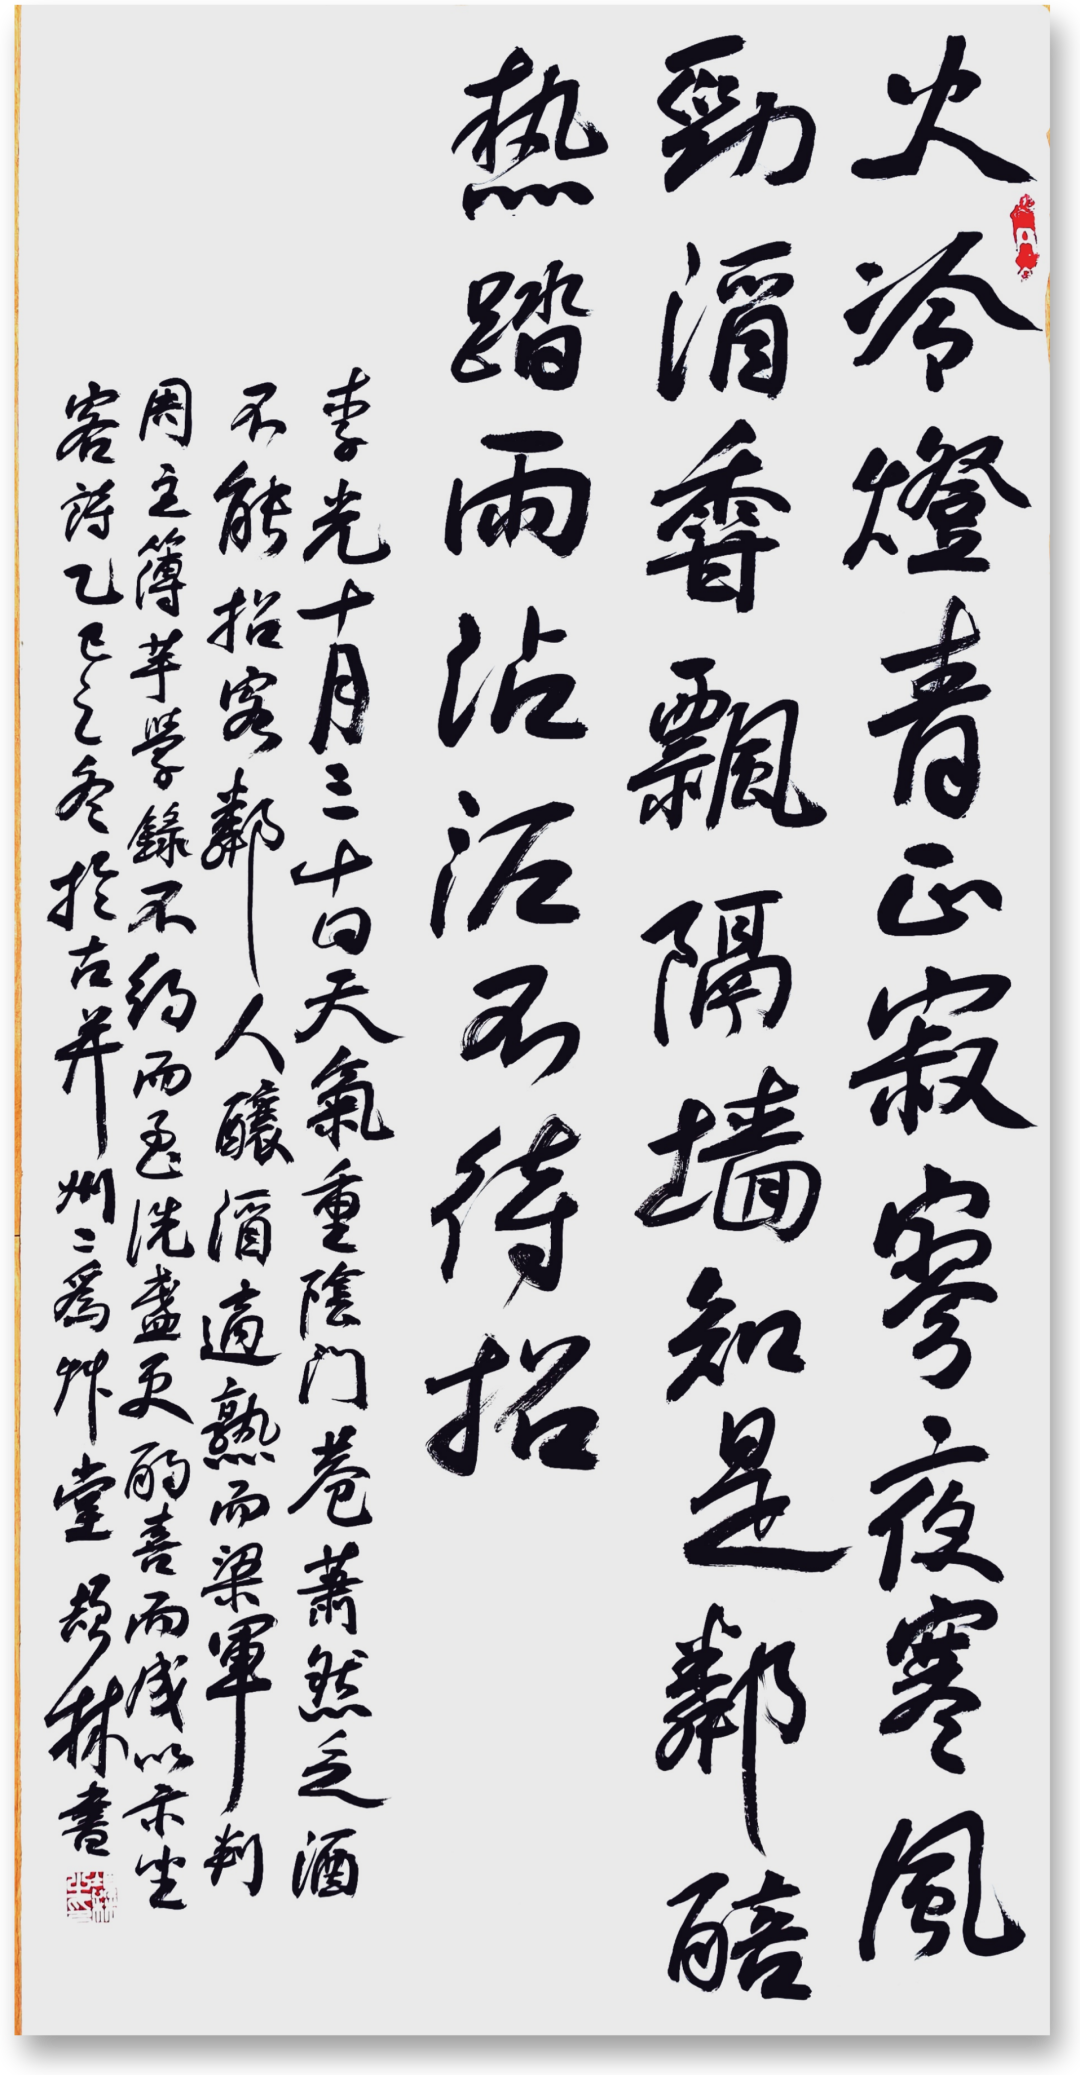 火冷燈青正寂寥夜寒風
勁酒香飄隔墙知是鄰醅
热踏雨沾泥不待招
李光十月三十日天氣重陰門巷蕭然乏酒
不能招客鄰人釀酒適熟而梁軍判
周主簿芋學錄不約而至洗盞更酌喜而成以示坐
客詩乙巳之冬於古并州二爲艸堂
林書